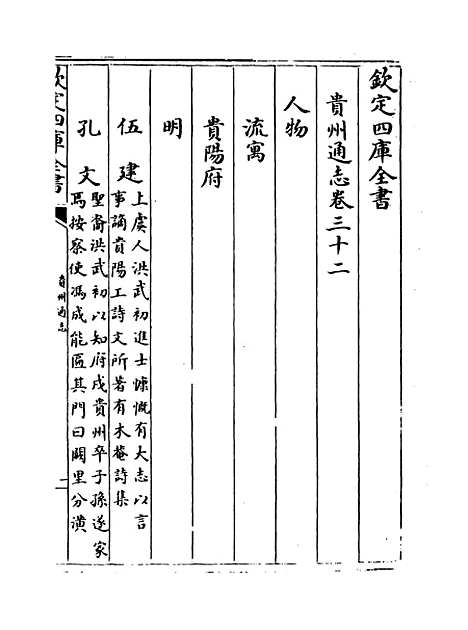 欽定四庫全書
貴州通志卷三十二
人物
流寓
貴陽府
明
伍建
上虞人洪武初進士慷慨有大志以言
事謫貴陽工詩文所著有木菴詩集
孔文
聖裔洪武初以知府戍貴州卒子孫遂家
焉按察使馮成能匾其門曰闕里分潢
欽定四庫全書
貴州通志
一